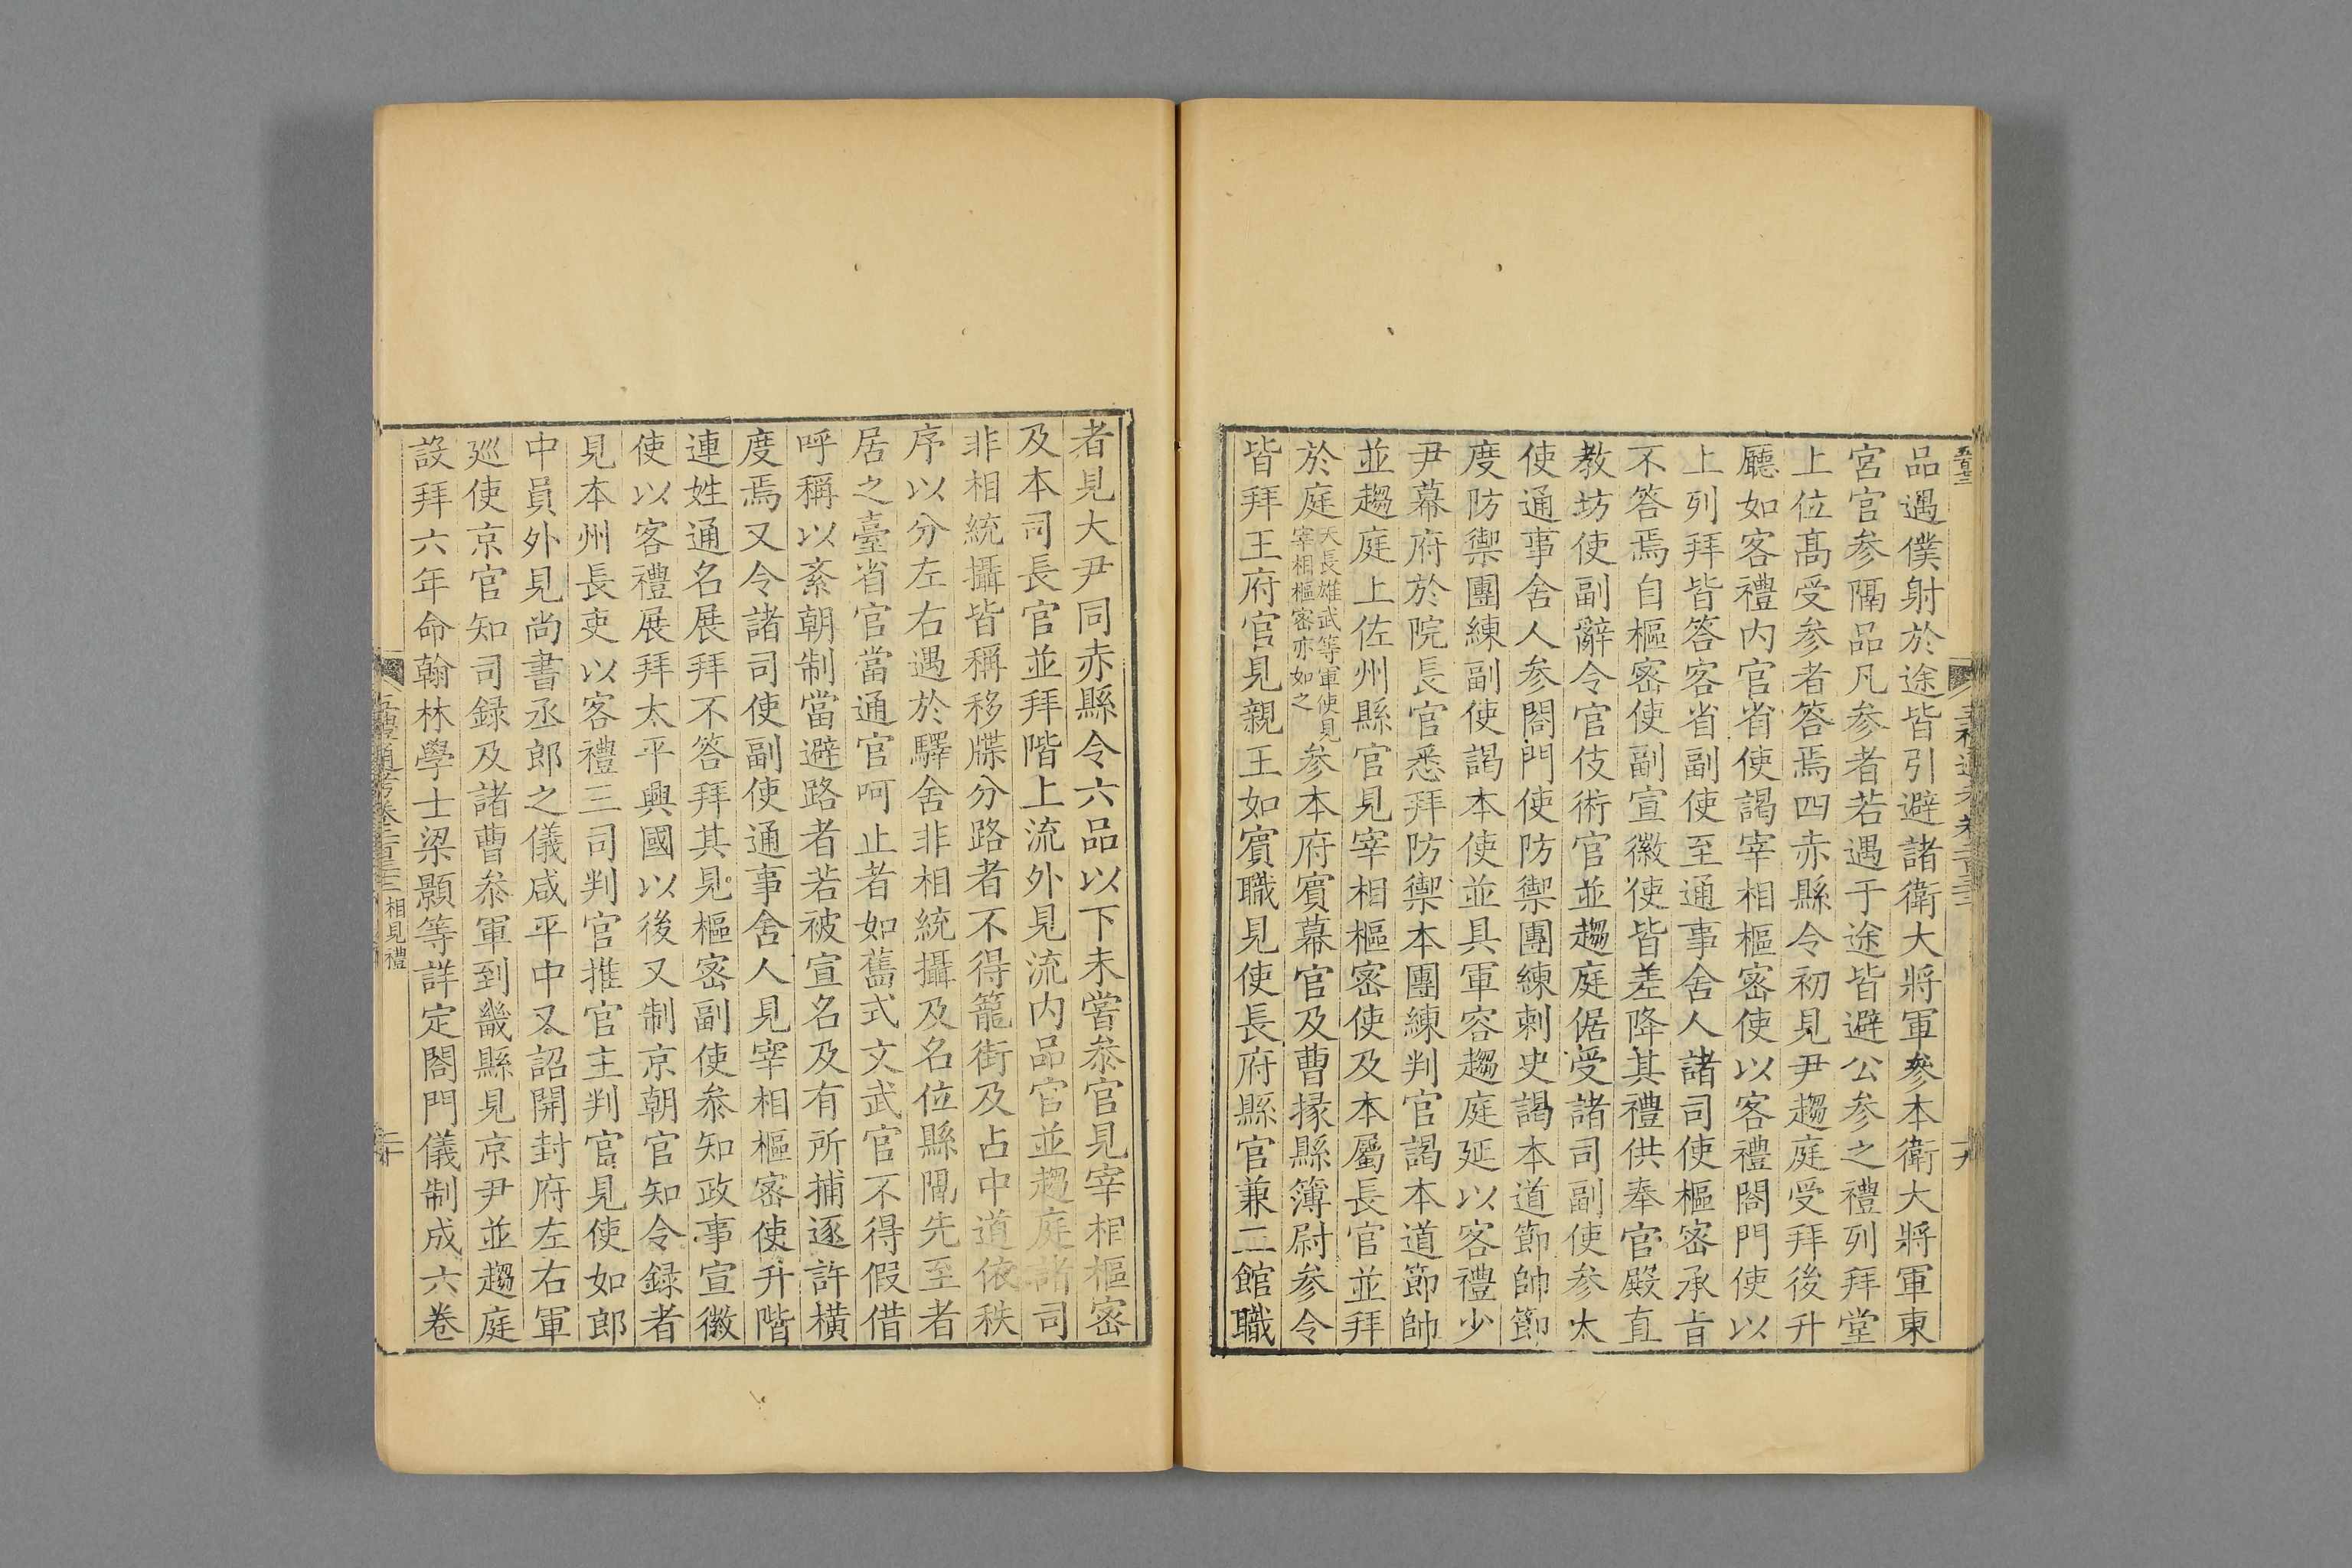 品遇僕射於途皆引避諸衛大將軍參本衛大將軍東
宮官参隔品凡参者若遇于途皆避公参之禮列拜堂
上位髙受参者答焉四赤縣令初見尹趨庭受拜後升
廳如客禮内官省使謁宰相樞密使以客禮閤門使以
上列拜皆答客省副使至通事舍人諸司使樞密承㫖
不答焉自樞密使副宣徽使皆差降其禮供奉官殿直
教坊使副辭令官伎術官並趨庭倨受諸司副使参大
使通事舍人参閤門使防禦團練刺史謁本道節帥節
度防禦團練副使謁本使並具軍容趨庭延以客禮少
尹幕府於院長官悉拜防禦本團練判官謁本道節帥
並趨庭上佐州縣官見宰相樞密使及本屬長官並拜
於庭天長雄武等軍使見宰相樞密亦如之參本府賓幕官及曹掾縣簿尉参令
皆拜王府官見親王如賓職見使長府縣官兼二館職
者見大尹同赤縣令六品以下未嘗叅官見宰相樞密
及本司長官並拜階上流外見流内品官並趨庭諸司
非相統攝皆稱移牒分路者不得籠街及占中道依秩
序以分左右遇於驛舍非相統攝及名位縣隔先至者
居之臺省官當通官呵止者如舊式文武官不得假借
呼稱以紊朝制當避路者若被宣名及有所捕逐許横
度焉又令諸司使副使通事舍人見宰相樞密使升階
連姓通名展拜不答拜其見樞密副使叅知政事宣徽
使以客禮展拜太平興國以後又制京朝官知令録者
見本州長吏以客禮三司判官推官主判官見使如郎
中員外見尚書丞郎之儀咸平中又詔開封府左右軍
廵使京官知司録及諸曹叅軍到畿縣見京尹並趨庭
設拜六年命翰林學士梁顥等詳定閤門儀制成六卷
相見禮